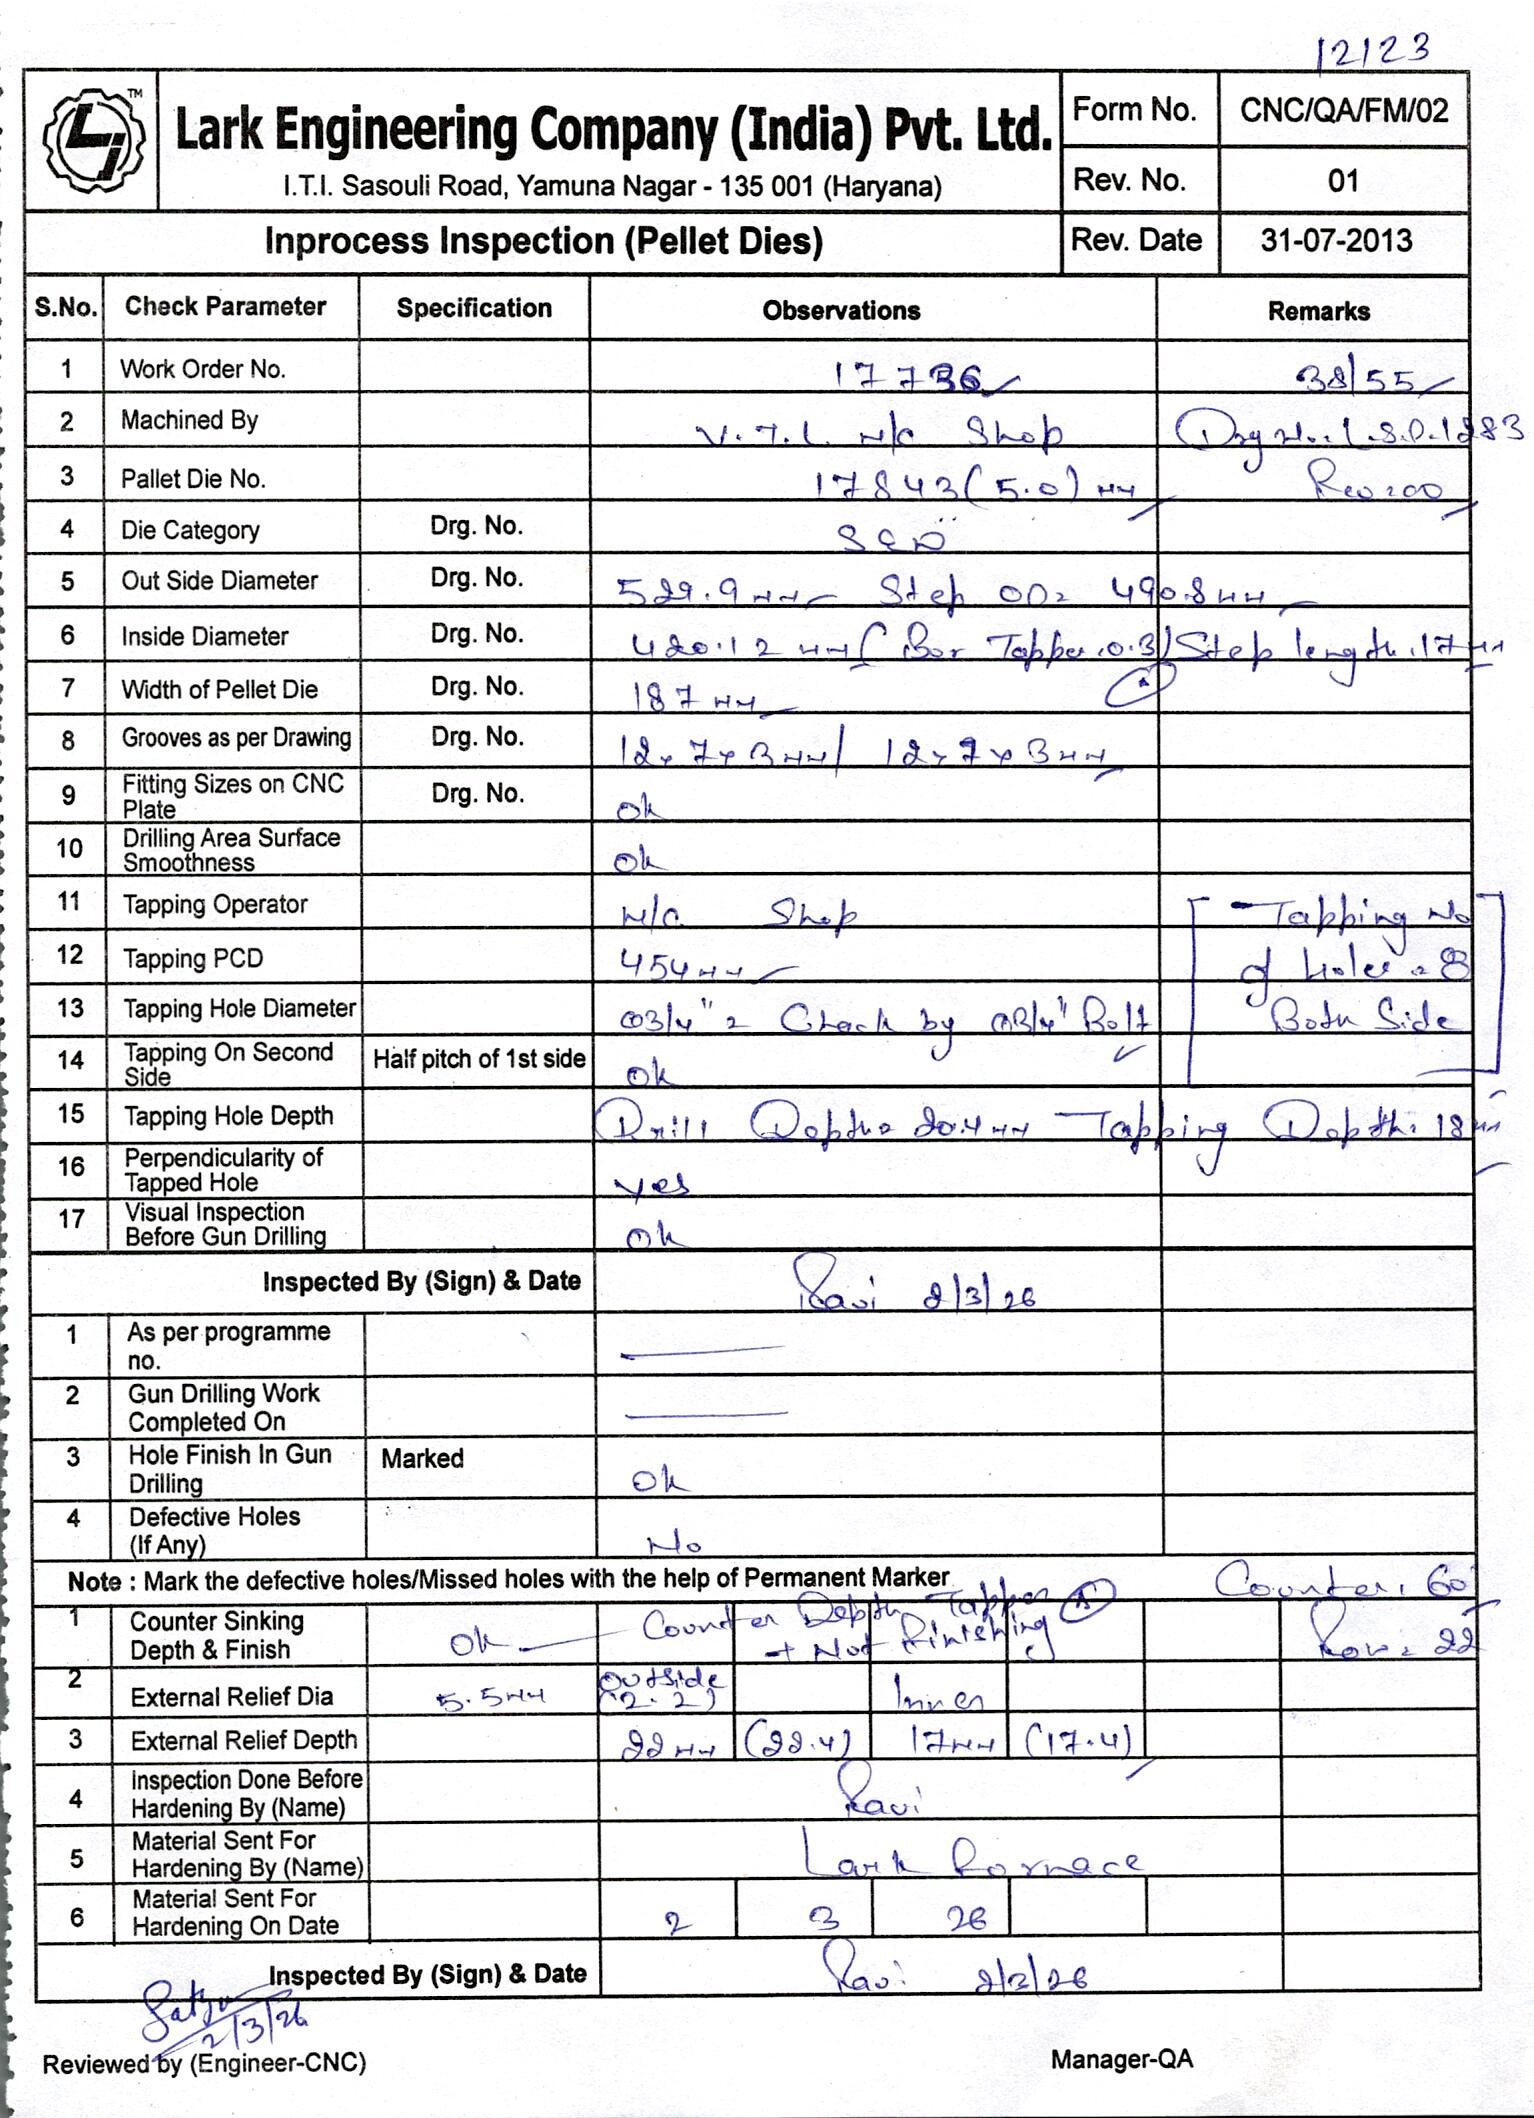 12123
TM
Lark Engineering Company (India) Pvt. Ltd.
I.T.I. Sasouli Road, Yamuna Nagar - 135 001 (Haryana)
Form No. CNC/QA/FM/02
Rev. No. 01
Inprocess Inspection (Pellet Dies) Rev. Date 31-07-2013
S.No. Check Parameter Specification Observations Remarks
1 Work Order No. 17736 38/55
2 Machined By V.T.L. M/C Shop Drg No. L.S.D.1283
3 Pallet Die No. 17843 (5.0) mm Rev:00
4 Die Category Drg. No.
5 Out Side Diameter Drg. No. 529.9mm Step OD= 490.8mm
6 Inside Diameter Drg. No. 420.12 mm (Bor Tapper. 0.3) Step length. 17mm
7 Width of Pellet Die Drg. No. 187 mm
8 Grooves as per Drawing Drg. No. 12x7x3mm/ 12x7x3mm
9 Fitting Sizes on CNC Plate Drg. No. ok
10 Drilling Area Surface Smoothness ok
11 Tapping Operator M/C Shop Tapping No
12 Tapping PCD 454mm of holes = 8
13 Tapping Hole Diameter Ø3/4" = Check by Ø3/4" Bolt Both Side
14 Tapping On Second Side Half pitch of 1st side ok
15 Tapping Hole Depth Drill Depth= 20.4mm Tapping Depth: 18mm
16 Perpendicularity of Tapped Hole yes
17 Visual Inspection Before Gun Drilling ok
Inspected By (Sign) & Date Ravi 2/3/26
1 As per programme no.
2 Gun Drilling Work Completed On
3 Hole Finish In Gun Drilling Marked ok
4 Defective Holes (If Any) No
Note : Mark the defective holes/Missed holes with the help of Permanent Marker Counter: 60°
1 Counter Sinking Depth & Finish ok Counter Depth Tapper + Not Finishing Row= 22
2 External Relief Dia 5.5mm Outside (2.2) Inner
3 External Relief Depth 22mm (22.4) 17mm (17.4)
4 Inspection Done Before Hardening By (Name) Ravi
5 Material Sent For Hardening By (Name) Lark Fornace
6 Material Sent For Hardening On Date 2 3 26
Inspected By (Sign) & Date Ravi 2/3/26
2/3/26
Reviewed by (Engineer-CNC) Manager-QA